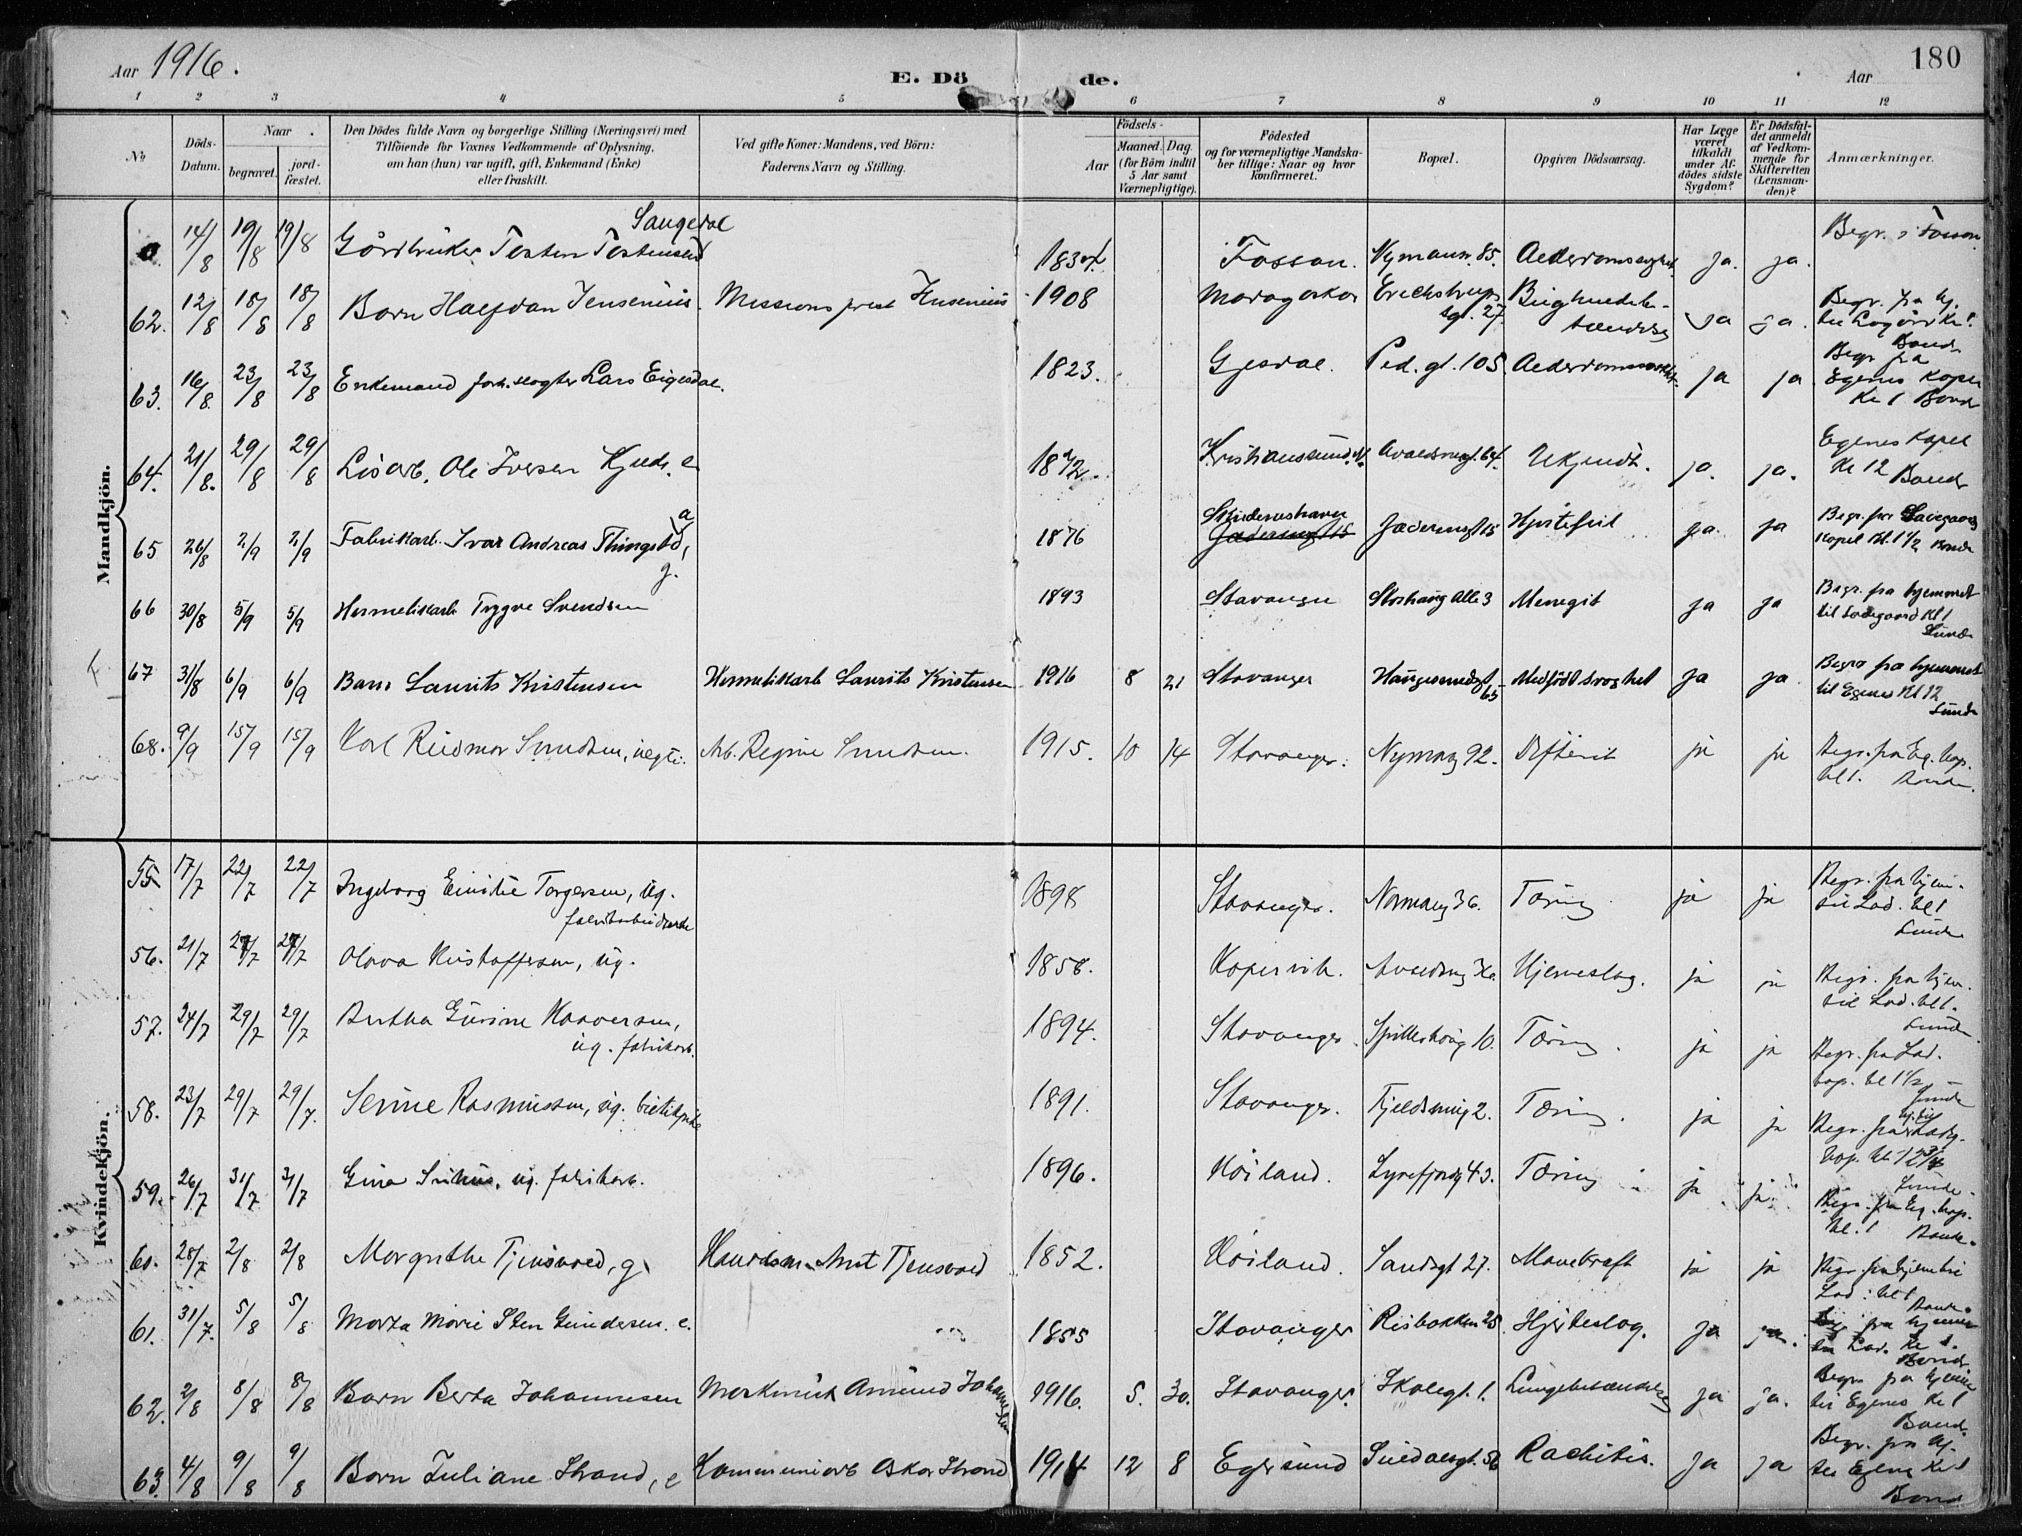 Aar 1916.
E. Döde.
Aar
180
1 2 3 4 5 6 7 8 9 10 11 12
No
Döds-Datum.
Naar
begravet.
jord-fæstet.
Den Dödes fulde Navn og borgerlige Stilling (Næringsvei) med
Tilföiende for Voxnes Vedkommende af Oplysning,
om han (hun) var ugift, gift, Enkemand (Enke)
eller fraskilt.
Ved gifte Koner: Mandens, ved Börn:
Faderens Navn og Stilling.
Födsels-
Aar
Maaned. Dag.
(for Börn indtil
5 Aar samt
Værnepligtige).
Födested
og for værnepligtige Mandska-
ber tillige: Naar og hvor
konfirmeret.
Bopæl.
Opgiven Dödsaarsag.
Har Læge
været
tilkaldt
under Af-
dödes sidste
Sygdom?
Er Dödsfal-
det anmeldt
af Vedkom-
mende for
Skifteretten
(Lensman-
den)?
Anmærkninger.
Mandkjön.
14/8 19/8 19/8 Gårdbruker Tosten Tostensen 1834 Fossan. Nymansv. 85. ja. ja. Begr. i Fossan
62. 12/8 18/8 18/8 Barn Halfdan Jensenius. Missionsprest Jensenius 1908 Madagaskar Erichstrups gt. 27. ja ja. Begr. fra hj.
63. 16/8. 23/8 23/8 Enkemand forh. slagter Lars Eigesdal. 1823. Gjesdal. Ped. gt. 105. ja ja. Begr fra Egenes Kapel Kl 1 Bond
64. 21/8. 29/8 29/8 Lösarb. Ole Iversen e 1872. Kristianssund. N. Avaldsnesgt. 64. Ukjendt. ja. ja. Egenes Kapel Kl 12 Bond
65 26/8 2/9 2/9 Fabrikkarb. Ivar Andreas Thingstad, g. 1876 Jæderensgt 15 Hjertefeil ja. ja Kapel Kl. 1 1/2 Bonde
66 30/8 5/9 5/9 Hermetikkarb Trygve Svendsen 1893 Stavanger Storhaug Alle 3 Menegit ja ja Begr. fra hjemmet til Ladegaard Kl 1 Lunde
67 31/8 6/9 6/9 Barn Laurits Kristensen Hermetikkarb Laurits Kristensen 1916 8 21 Stavanger Haugesundgt. 65 Medfödt svaghet ja ja Begra fra hjemmet til Egenes Kl 12 Lunde
68. 9/9 15/9 15/9 Karl Reidmar Svendsen, uegte. Arb. Regine Svendsen. 1915. 10 14 Stavanger. Nymansv 92. Difterit ja ja Begr. fra Eg. kap. kl 1. Bonde.
Kvindekjön.
55 17/7 22/7 22/7 Ingeborg Emilie Torgersen, ug. fabrikarbeiderske 1898 Stavanger. Normansg 36. Tæring ja ja Begr. fra hjem. til Lad. kl 1 Lunde
56. 21/7 27/7 27/7 Olava Kristoffersen, ug. 1858. Kopervik. Hjerneslag. ja ja Begr. fra hjem. til Lad. kl 1. Lunde
57. 24/7 29/7 29/7 Bertha Gurine Haaversen, ug. fabrikarb. 1894. Stavanger. Spilderhaug 10. Tæring. ja ja Begr. fra Lad. kap. kl 1 1/2 Lunde
58. 23/7 29/7 29/7. Serine Rasmussen, ug. 1891. Stavanger. Fjeldsmug 2. Tæring. ja ja
59. 26/7 31/7 31/7 Gina ug. fabrikarb. 1896. Höiland. Lysefjordg 43. Tæring ja ja. Lunde.
60. 28/7 2/8 2/8 Margrethe Tjensvold, g. Tjensvold 1852. Höiland. Sandsgt 27. Mavekræft ja ja Begr. fra Eg. kap. kl. 1 Bonde.
61. 31/7. 5/8 5/8 Marta Marie Sten Gundersen. e. 1855 Stavanger Risbakken 25. Hjerteslag. ja ja. Begr fra hjem til Lad. kl 1 Bonde.
62. 2/8 8/8 8/8 Barn Berta Johannesen Amund Johannesen 1916. 5. 30. Stavanger. Skolegt. 1. Lungebetændelse ja ja. Begr. fra hjem til Egenes Kl 1 Bond.
63. 4/8 9/8 9/8 Barn Juliane Strand, e Kommuniarb Oskar Strand 1914 12 8 Egersund Suldalsgt. 56 Rachitis. ja ja Begr. fra hj. til Egenes Kl 1 Bond